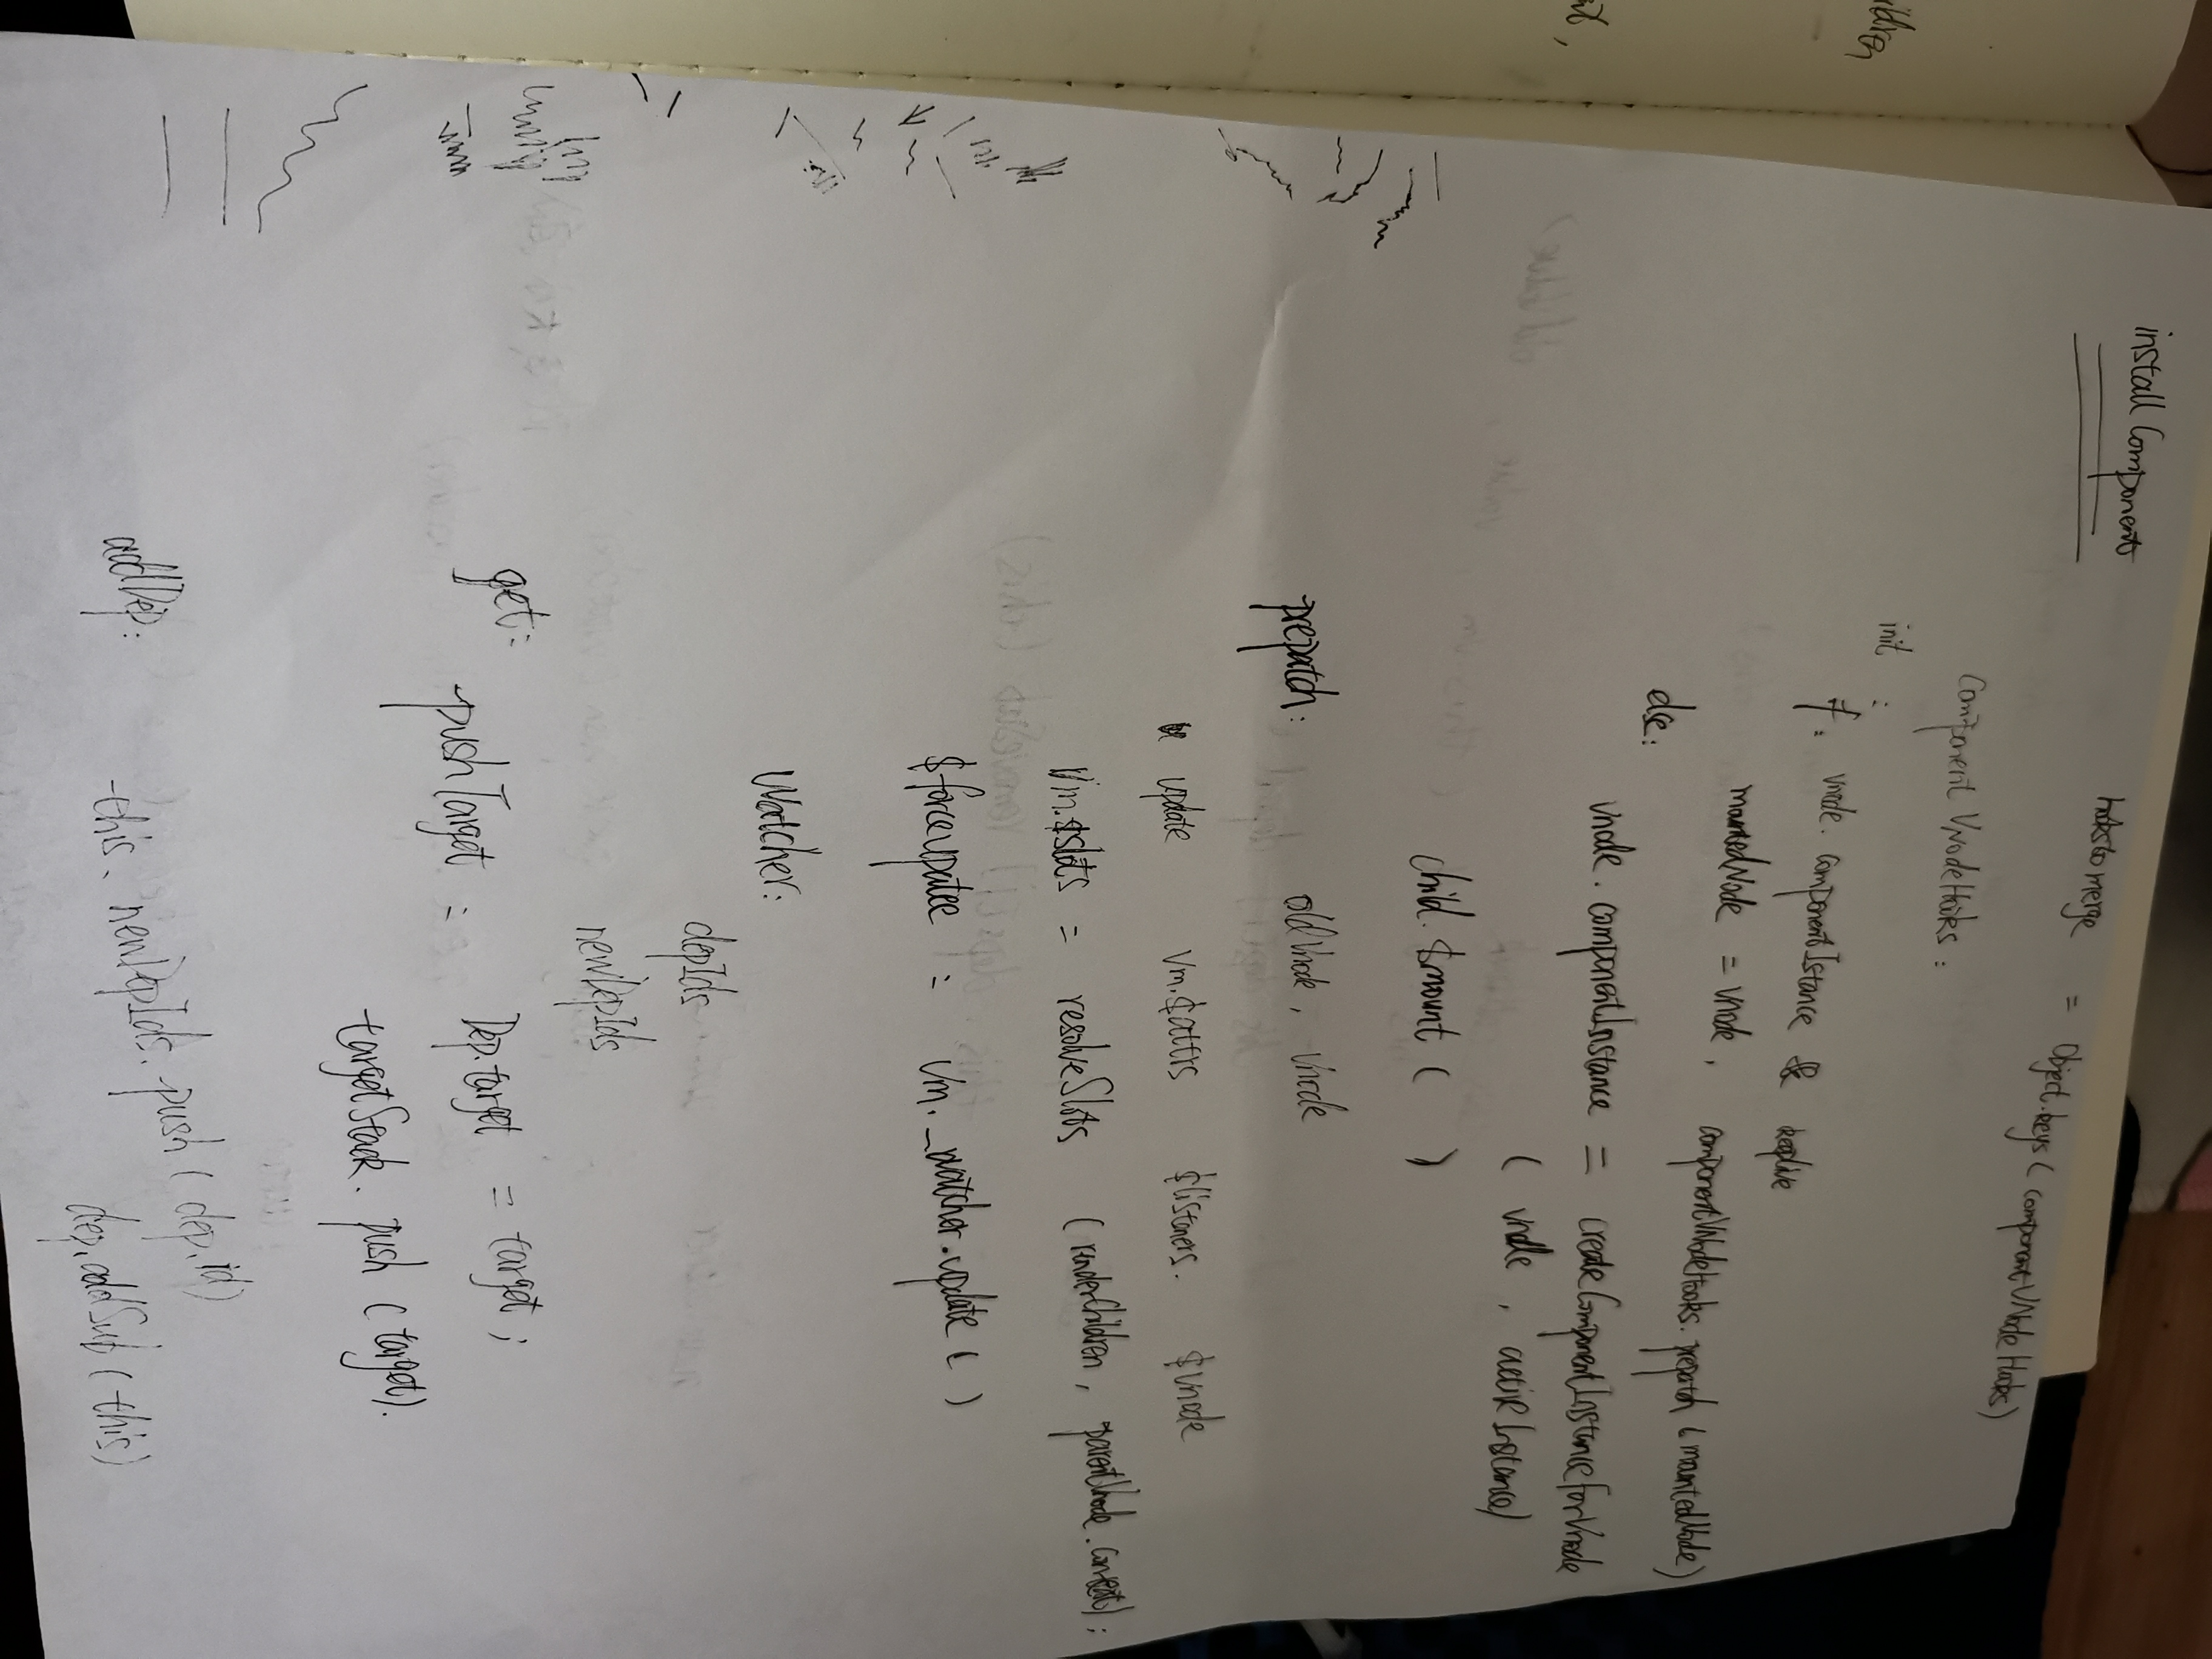 install Component
hooksto merge = Object.keys ( componentVNodeHooks )
Component VnodeHooks :
init :
if : vnode. componentIstance && keeplive
mountedNode = vnode, componentVNodeHooks. prepatch ( mountedNode )
else :
vnode. componentInstance = createComponentInstanceForVnode
( vnode , activeInstance )
child. $mount ( )
prepatch : oldVnode , vnode
update vm.$attrs $listeners. $vnode
vm.$slots = resolveSlots ( renderChildren , parentVnode. context ) ;
$forceupdate : vm. _watcher. update ( )
Watcher :
depIds
newDepIds
get : pushTarget : Dep.target = target ;
targetStack. push ( target ).
addDep : this. newDepIds. push ( dep. id )
dep. addSub ( this )